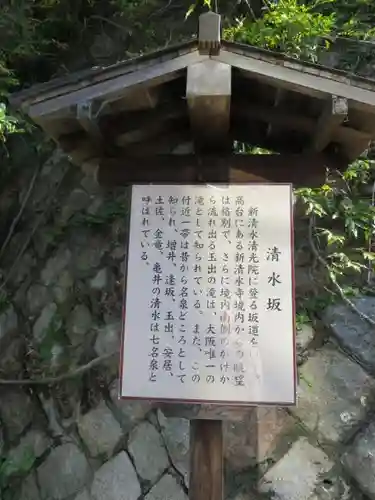 清水坂
新清水清光院に登る坂道を
高台にある新清水寺境内か 眺望
は格別で、さらに境内南側のがけか
ら流れ出る玉出の滝は、大阪唯一の
滝として知られている。また、この
付近一帯は昔から名泉どころとして
知られ、増井、逢坂、玉出、安居、
土佐、金竜、亀井の清水は七名泉と
呼ばれている。